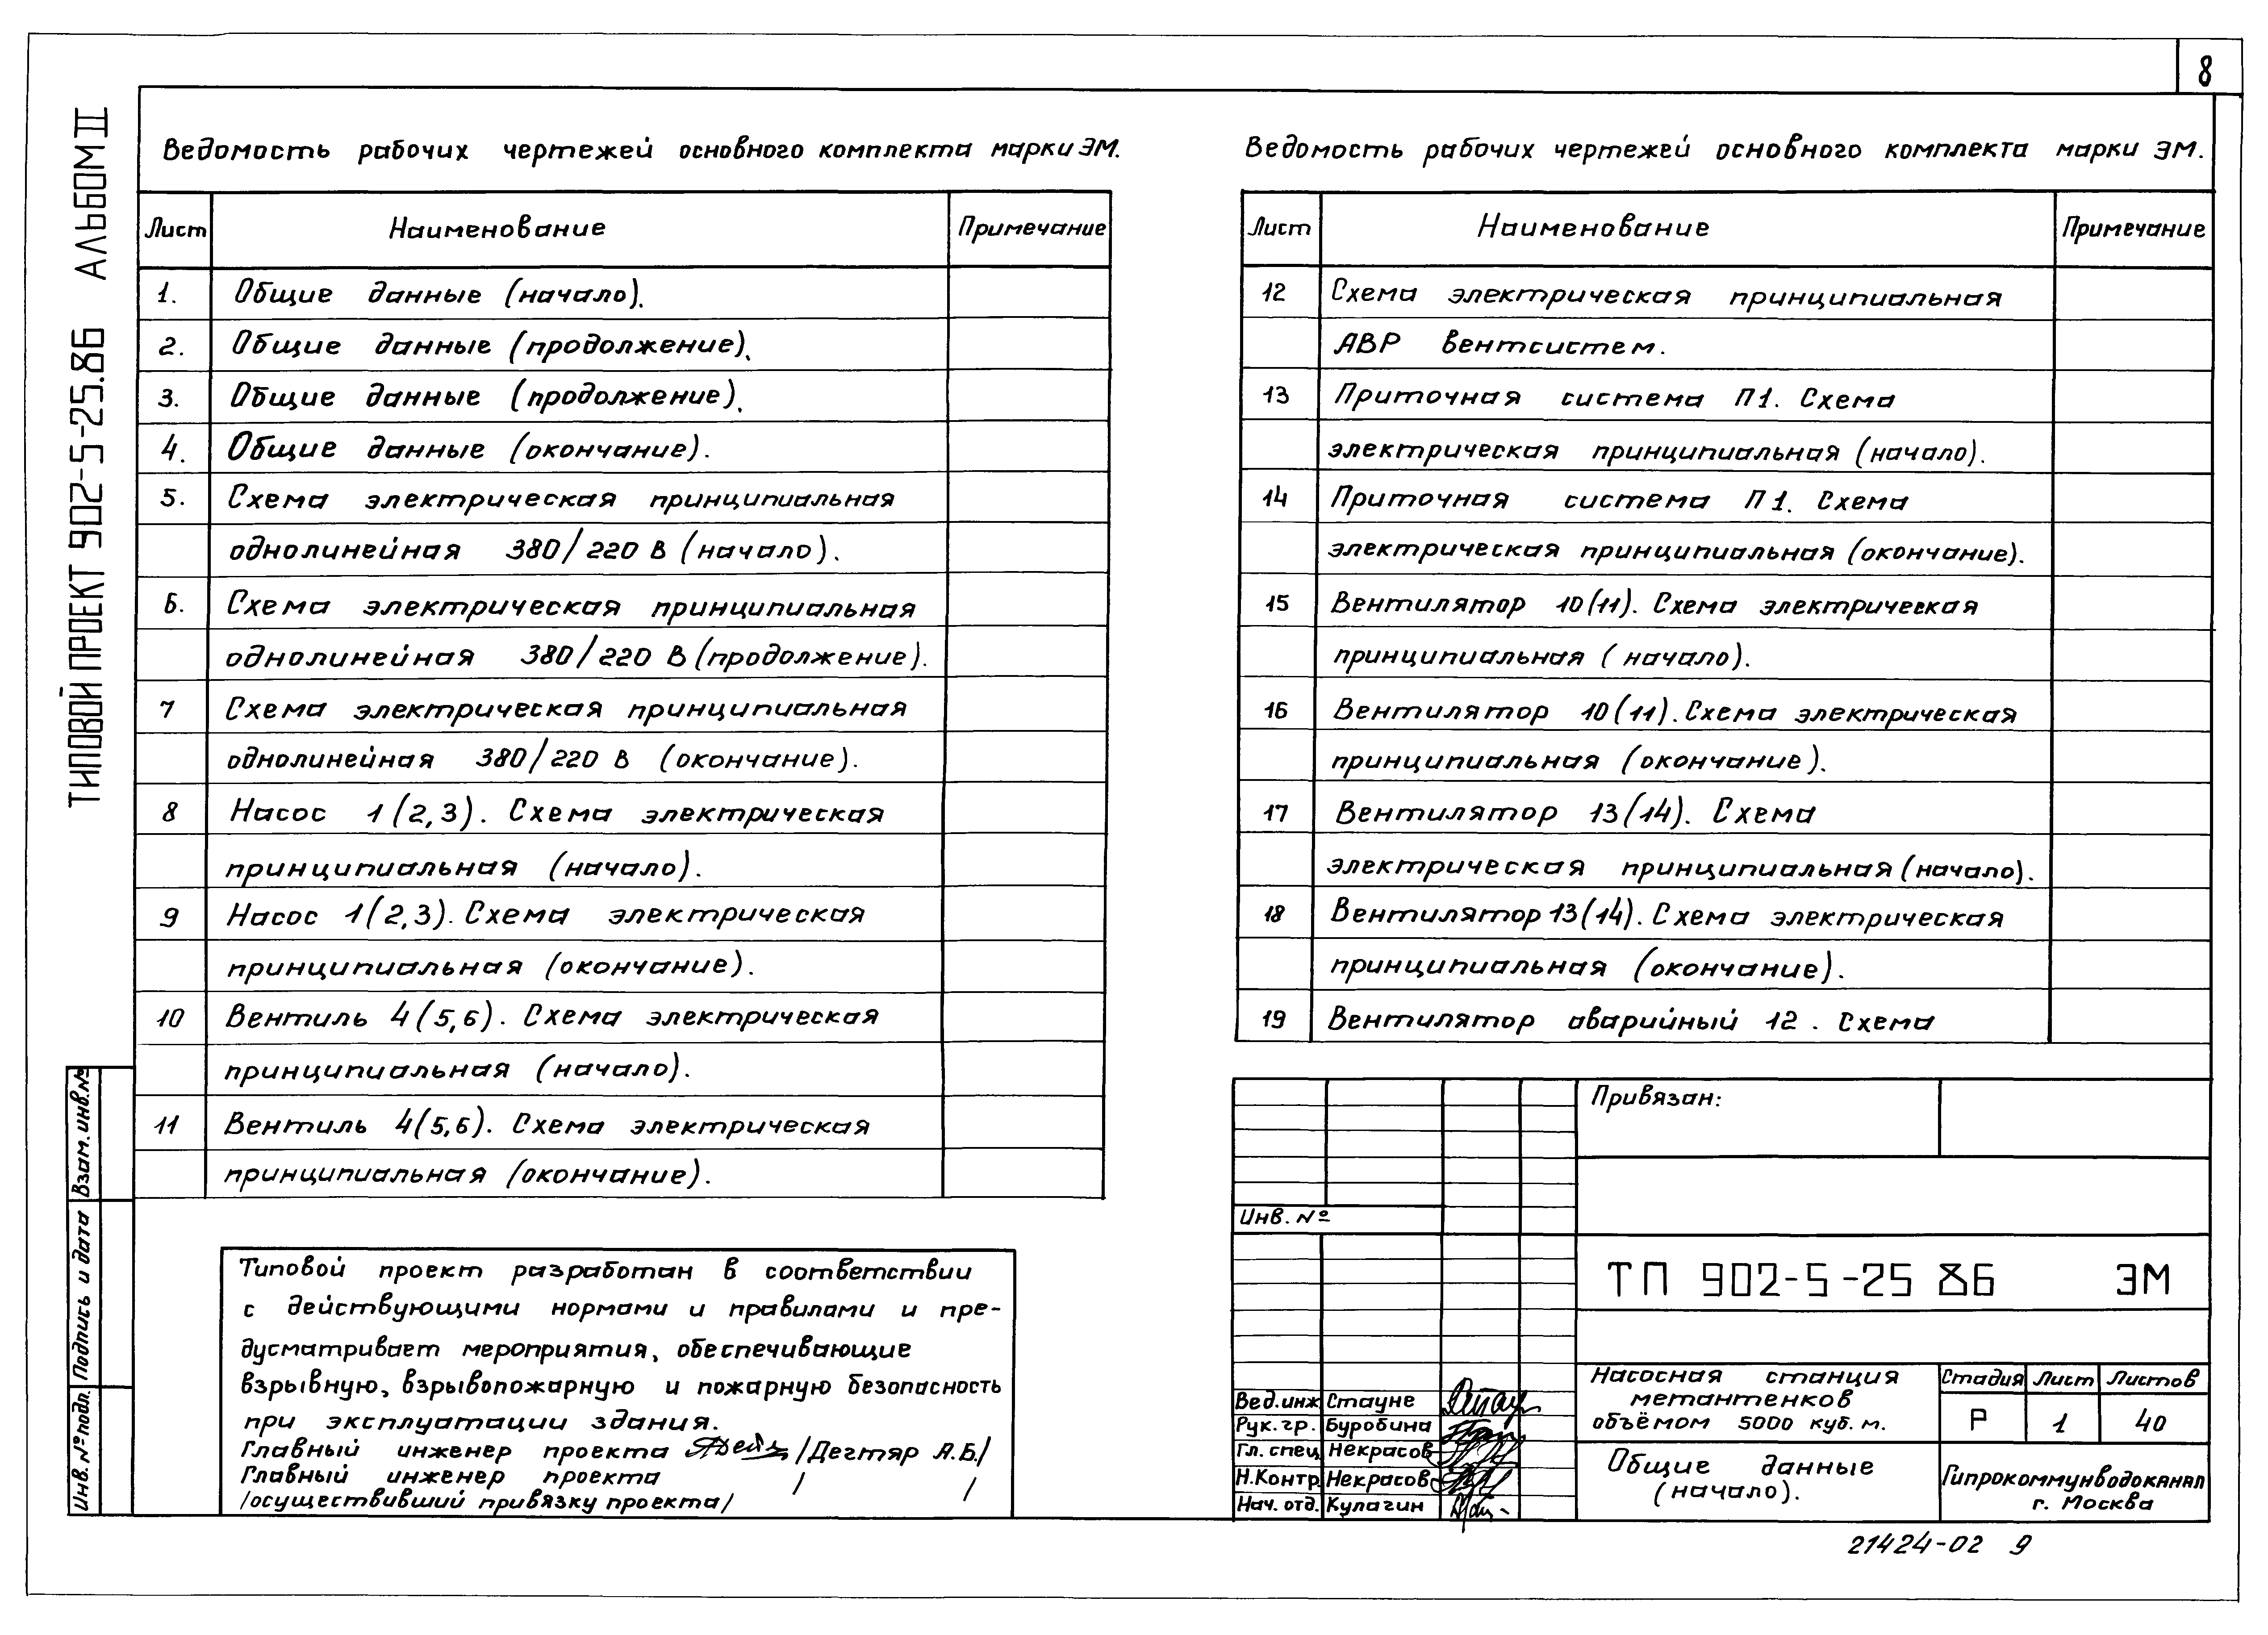 8
ТИПОВОЙ ПРОЕКТ 902-5-25.86 АЛЬБОМ II
Ведомость рабочих чертежей основного комплекта марки ЭМ.
Лист Наименование Примечание
1. Общие данные (начало).
2. Общие данные (продолжение).
3. Общие данные (продолжение).
4. Общие данные (окончание).
5. Схема электрическая принципиальная
однолинейная 380/220 В (начало).
6. Схема электрическая принципиальная
однолинейная 380/220 В (продолжение).
7 Схема электрическая принципиальная
однолинейная 380/220 В (окончание).
8 Насос 1(2,3). Схема электрическая
принципиальная (начало).
9 Насос 1(2,3). Схема электрическая
принципиальная (окончание).
10 Вентиль 4(5,6). Схема электрическая
принципиальная (начало).
11 Вентиль 4(5,6). Схема электрическая
принципиальная (окончание).
Ведомость рабочих чертежей основного комплекта марки ЭМ.
Лист Наименование Примечание
12 Схема электрическая принципиальная
АВР вентсистем.
13 Приточная система П1. Схема
электрическая принципиальная (начало).
14 Приточная система П1. Схема
электрическая принципиальная (окончание).
15 Вентилятор 10(11). Схема электрическая
принципиальная (начало).
16 Вентилятор 10(11). Схема электрическая
принципиальная (окончание).
17 Вентилятор 13(14). Схема
электрическая принципиальная (начало).
18 Вентилятор 13(14). Схема электрическая
принципиальная (окончание).
19 Вентилятор аварийный 12. Схема
Типовой проект разработан в соответствии
с действующими нормами и правилами и пре-
дусматривает мероприятия, обеспечивающие
взрывную, взрывопожарную и пожарную безопасность
при эксплуатации здания.
Главный инженер проекта /Дегтяр А.Б./
Главный инженер проекта / /
/осуществивший привязку проекта/
Взам. инв. №
Подпись и дата
Инв. № подл.
Привязан:
Инв. №
ТП 902-5-25 86 ЭМ
Вед.инж Стауне
Рук. гр. Буробина
Гл. спец Некрасов
Н.Контр. Некрасов
Нач. отд. Кулагин
Насосная станция
метантенков
объёмом 5000 куб. м.
Стадия Лист Листов
Р 1 40
Общие данные
(начало).
Гипрокоммунводоканал
г. Москва
21424-02 9